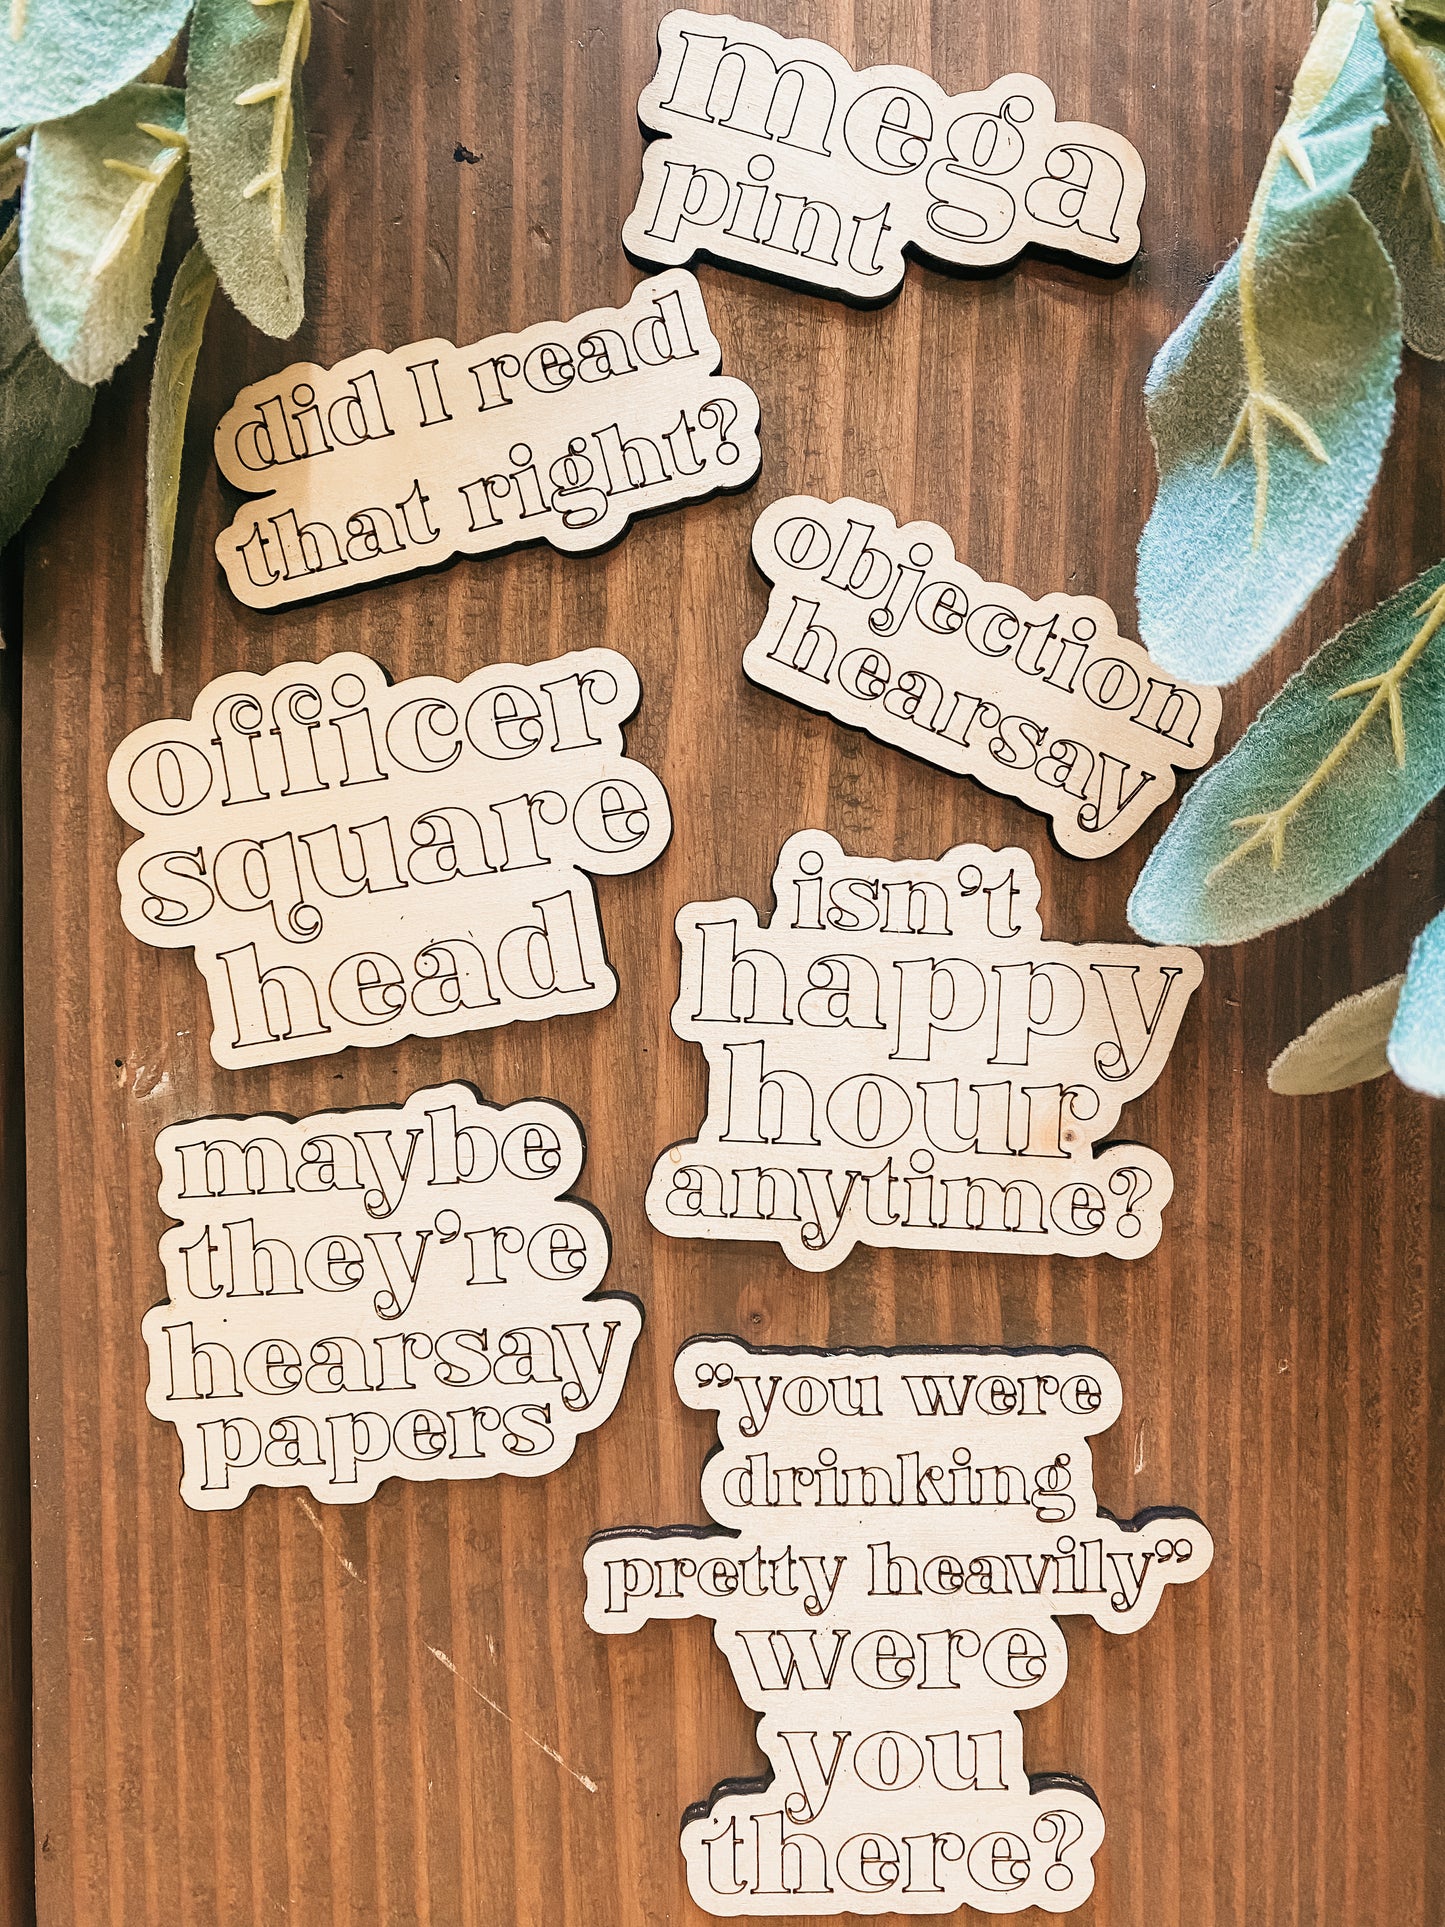 mega
pint
did I read
that right?
objection
hearsay
officer
square
head
isn't
happy
hour
anytime?
maybe
they're
hearsay
papers
”you were
drinking
pretty heavily”
were
you
there?